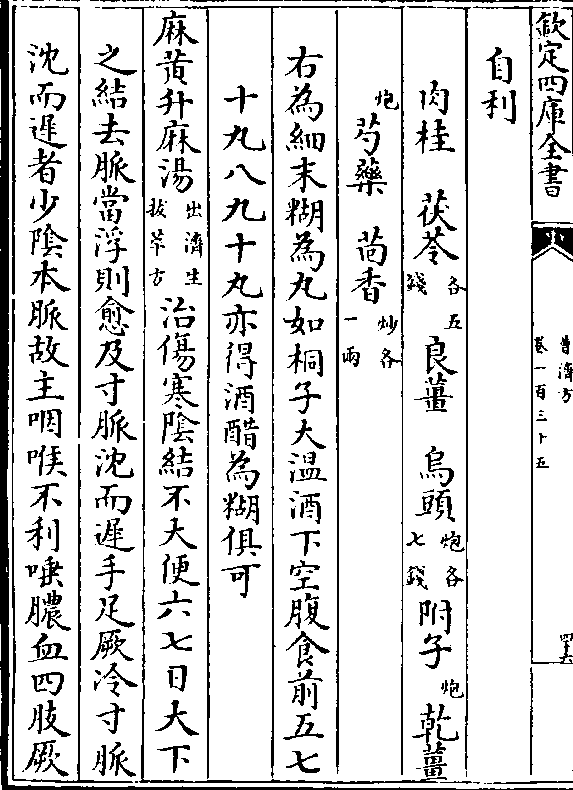 欽定四庫全書
普濟方
卷一百三十五
自利
肉桂 茯苓各五錢 良薑 烏頭炮各七錢 附子炮 乾薑
炮 芍藥 茴香炒各一兩
右為細末糊為丸如桐子大温酒下空腹食前五七
十丸八九十丸亦得酒醋為糊俱可
麻黄升麻湯出濟生拔萃方治傷寒陰結不大便六七日大下
之結去脈當浮則愈及寸脈沈而遲手足厥冷寸脈
沈而遲者少陰本脈故主咽喉不利唾膿血四肢厥